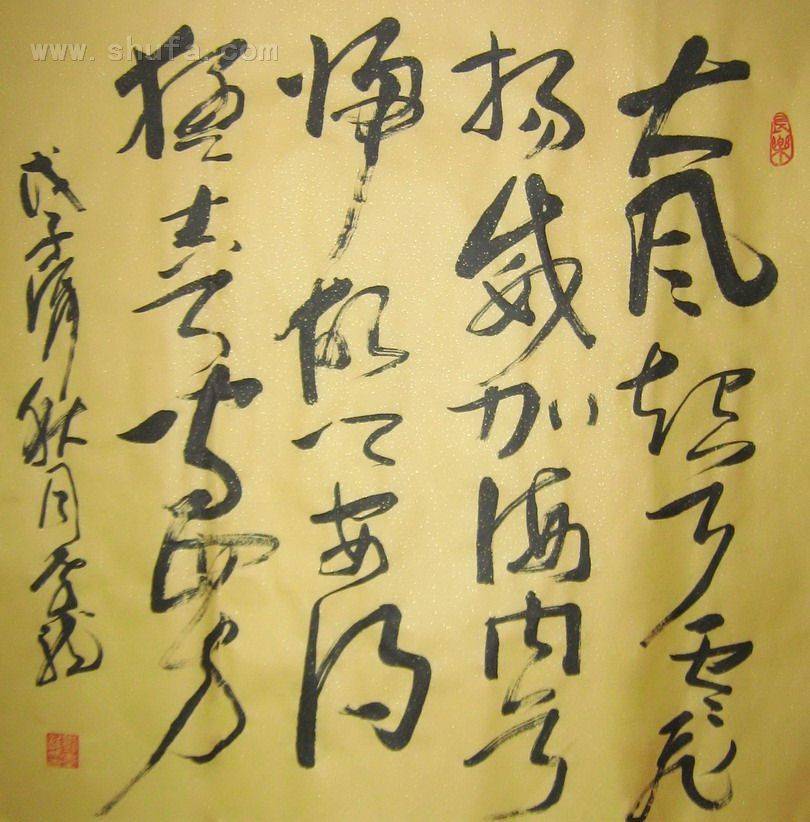 www.shufa.com
長樂
大風起兮雲飛
揚威加海内兮
歸故鄉安得
猛士兮守四方
戊子秋